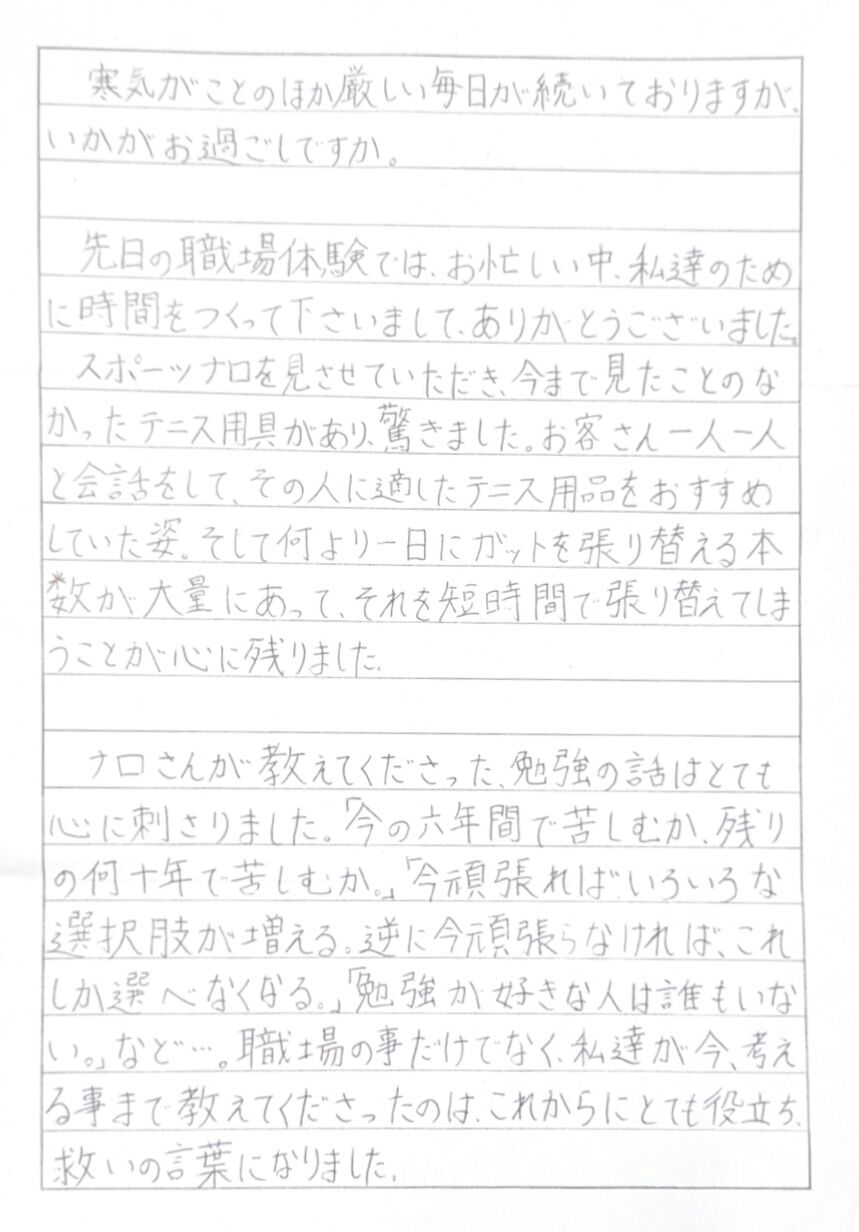 寒気がことのほか厳しい毎日が続いておりますが、
いかがお過ごしですか。
先日の職場体験では、お忙しい中、私達のため
に時間をつくって下さいまして、ありがとうございました。
スポーツナロを見させていただき、今まで見たことのな
かったテニス用具があり、驚きました。お客さん一人一人
と会話をして、その人に適したテニス用品をおすすめ
していた姿。そして何より一日にガットを張り替える本
数が大量にあって、それを短時間で張り替えてしま
うことが心に残りました。
ナロさんが教えてくださった、勉強の話はとても
心に刺さりました。「今の六年間で苦しむか、残り
の何十年で苦しむか。」「今頑張ればいろいろな
選択肢が増える。逆に今頑張らなければ、これ
しか選べなくなる。」「勉強が好きな人は誰もいな
い。」など…。職場の事だけでなく、私達が今、考え
る事まで教えてくださったのは、これからにとても役立ち、
救いの言葉になりました。